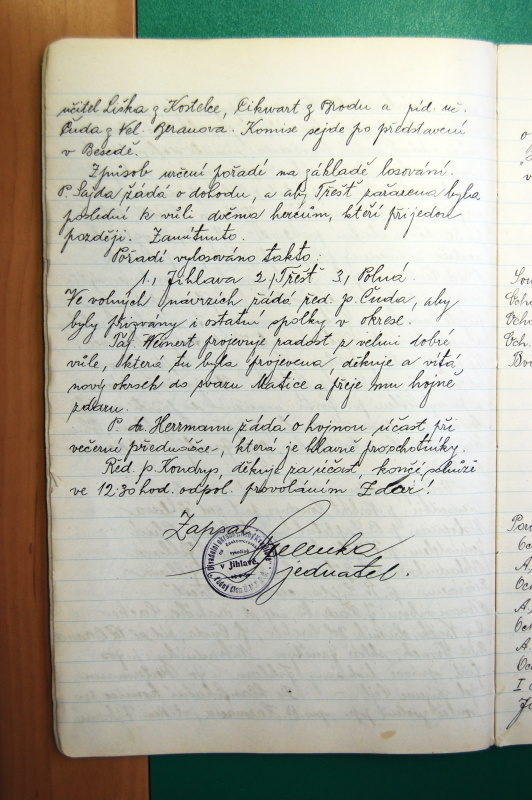 učitel Liška z Kostelce, Cikwart z Brodu a říd. uč.
Čuda z Vel. Beranova. Komise sejde po představení
v Besedě.
Způsob určení pořadí na základě losování.
P. Sajda žádá o dohodu, a aby Třešť zařazena byla
poslední k vůli dvěma hercům, kteří přijedou
později. Zamítnuto.
Pořadí vylosováno takto:
1, Jihlava 2, Třešť 3, Polná.
Ve volných návrzích žádá řed. p. Čuda, aby
byly přizvány i ostatní spolky v okrese.
Taj. Weinert projevuje radost z velmi dobré
vůle, která tu byla projevena, děkuje a vítá
nový okrsek do svazu Matice a přeje mu hojně
zdaru.
P. dr. Herrmann žádá o hojnou účast při
večerní přednášce, která je hlavně pro ochotníky.
Řed. p. Kondrys, děkuje za účast, končí schůzi
ve 12.30 hod. odpol. provoláním Zdar!
Zapsal
jednatel.
v Jihlavě.